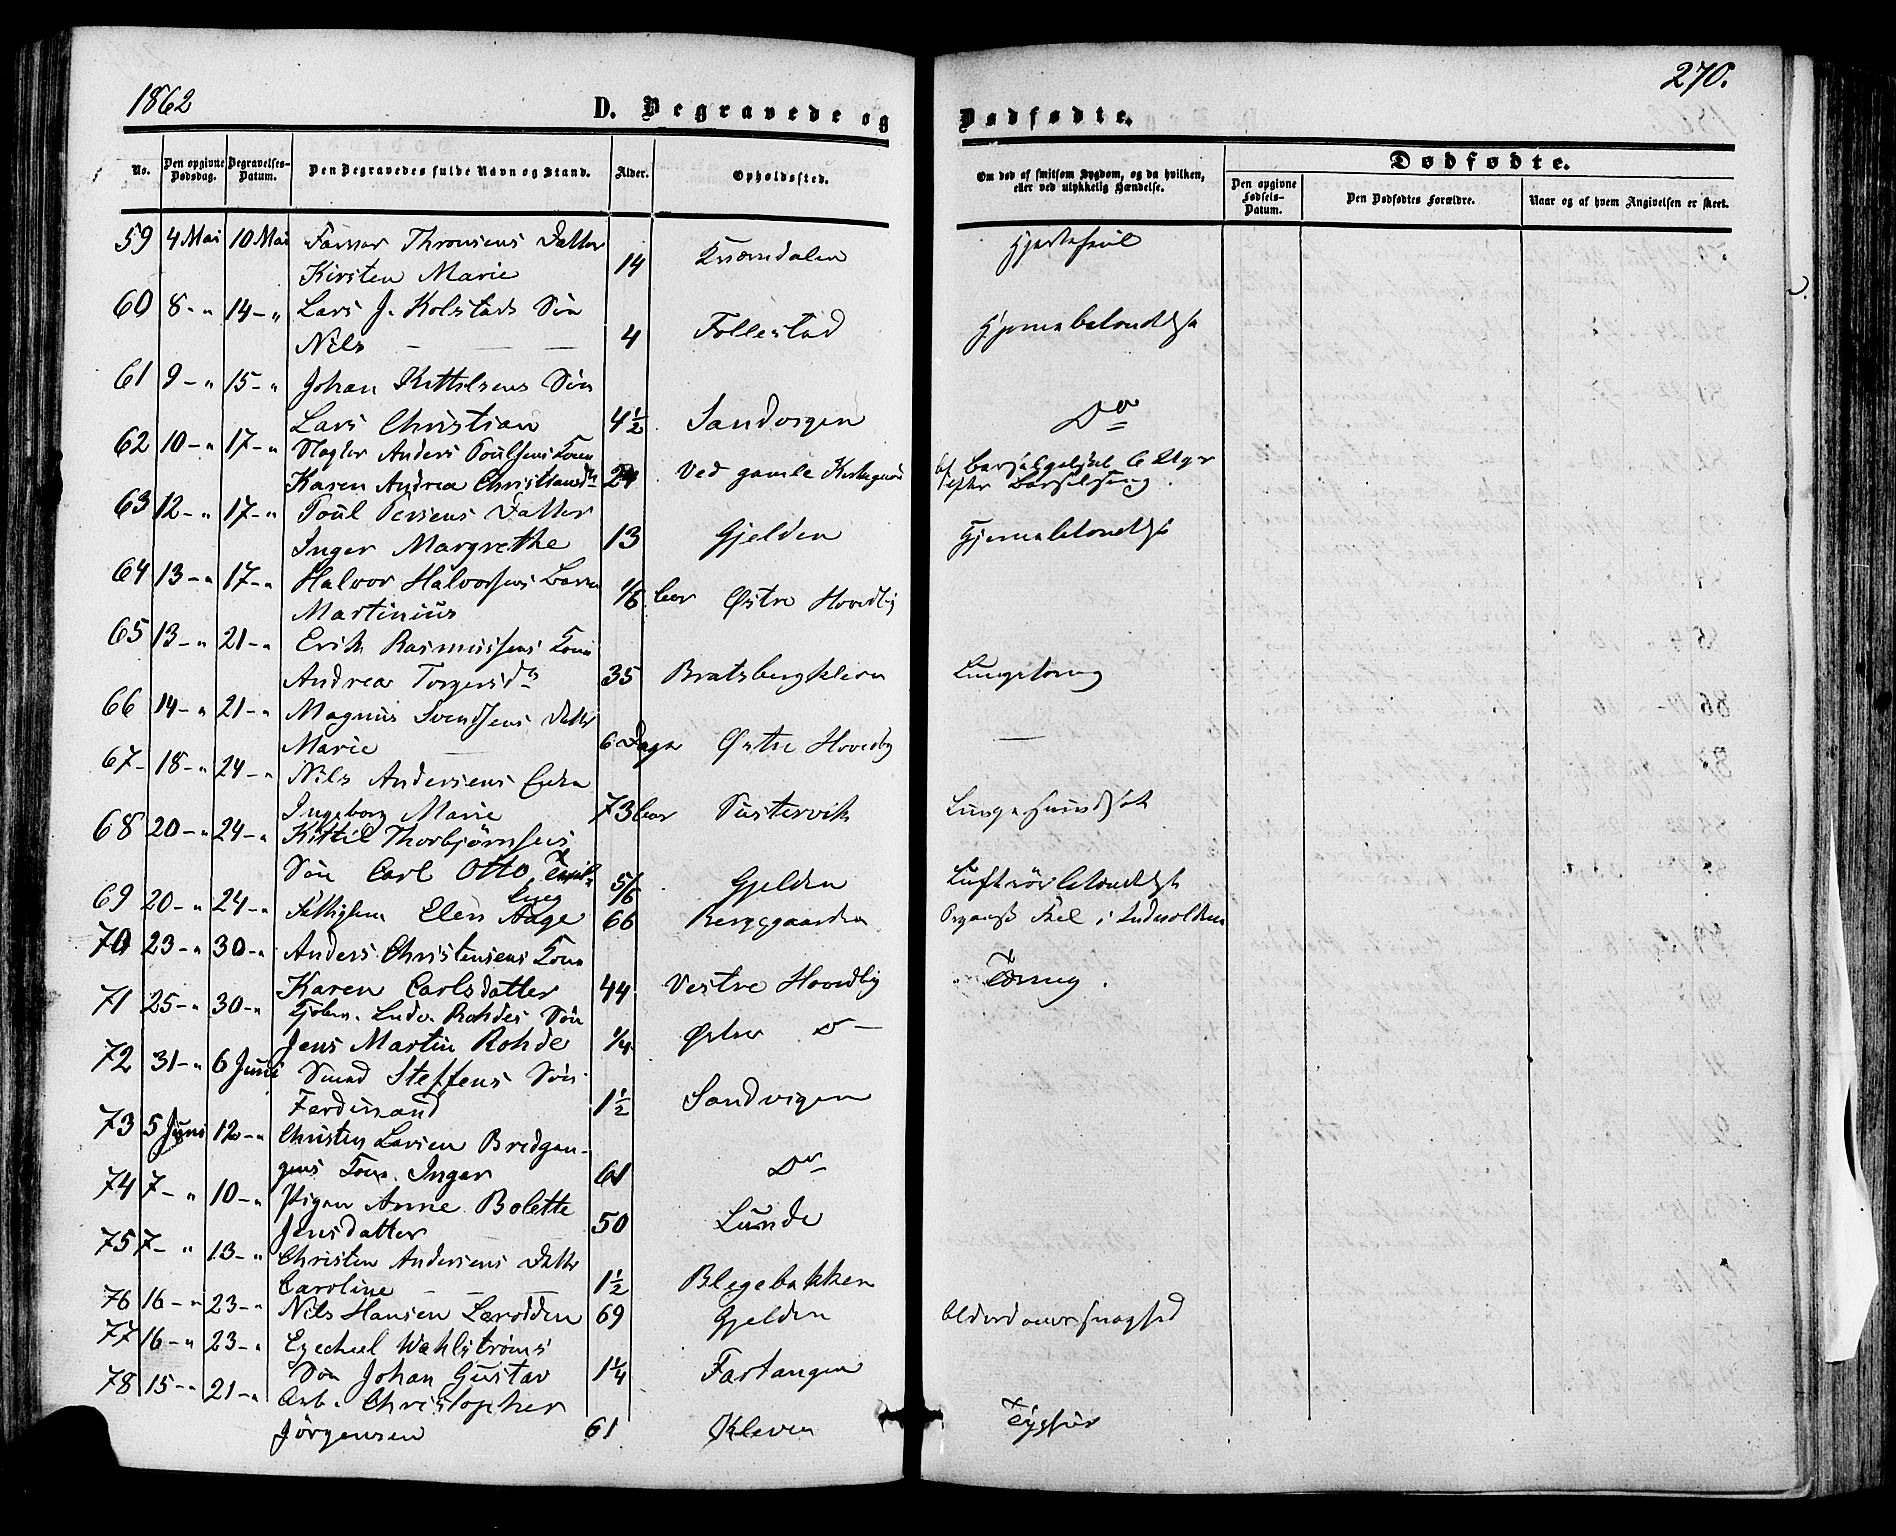 1862
270.
D. Begravede og Dødfødte.
No. Den opgivne Dødsdag. Begravelses-Datum. Den Begravedes fulde Navn og Stand. Alder. Opholdssted. Om død af smitsom Sygdom, og da hvilken, eller ved ulykkelig Hændelse. Dødfødte. Den opgivne Fødsels-Datum. Den Dødfødtes Forældre. Naar og af hvem Angivelsen er skeet.
59 4 Mai 10 Mai Thronsens Datter
Kirsten Marie 14
60 8 - " 14 - " Lars J. Kolstads Søn
Nils — — — 4 Follestad Hjernebetændelse
61 9 - " 15 - " Johan Kittilsens Søn
Lars Christian 4½ Sandvigen Do
62 10 - " 17 - " Anders Poulsens Kone
Karen Andrea Christiansdr 24 Ved gamle
efter Barselseng.
63 12 - " 17 - " Poul Datter
Inger Margrethe 13 Gjelden Hjernebetændelse
64 13 - " 17 - " Halvor Halvorsens Barn
Martinius 1/6 Østre Hovedby
65 13 - " 21 - " Erik Rasmussens Kone
Andrea Torgersdr 35 Bratsbergkleven Lungetæring
66 14 - " 21 - " Magnus Svendsens Datter
Marie — 6 Dage Østre Hovedby —
67 - 18 - " 24 - " Nils Andersens Enke
Ingeborg Marie 73 Sustervik
68 20 - " 24 - " Kittil Thorbjørnsens
Søn Carl Otto 5/6 Gjelden Luftrørbetændelse
69 20 - " 24 - " Elen Aage 66 Feil i Underlivet
70 23 - " 30 - " Anders Christensens Kone
Karen Carlsdatter 44 Vestre Hovedby Tæring.
71 25 - " 30 - " Rohdes Søn
Jens Martin Rohde 1/4 Østre Do —
72 31 - " 6 Juni Smed Steffens Søn
Ferdinand 1½ Sandvigen
73 5 Juni 12 - " Christen Larsen Bredgan-
gens Kone Inger 61 Do
74 7 - " 10 - " Pigen Anne Bolette
Jensdatter — 50 Lunde
75 7 - " 13 - " Christen Andersens Datter
Caroline — — 1½ Blegebakken
76 16 - " 23 - " Nils Hansen 69 Gjelden Alderdomssvaghed
77 16 - " 23 - " Wahlstrøms
Søn Johan Gustav 1¼ Fartangen
78 15 - " 21 - " Arb. Christopher
Jørgensen 61 Kleven